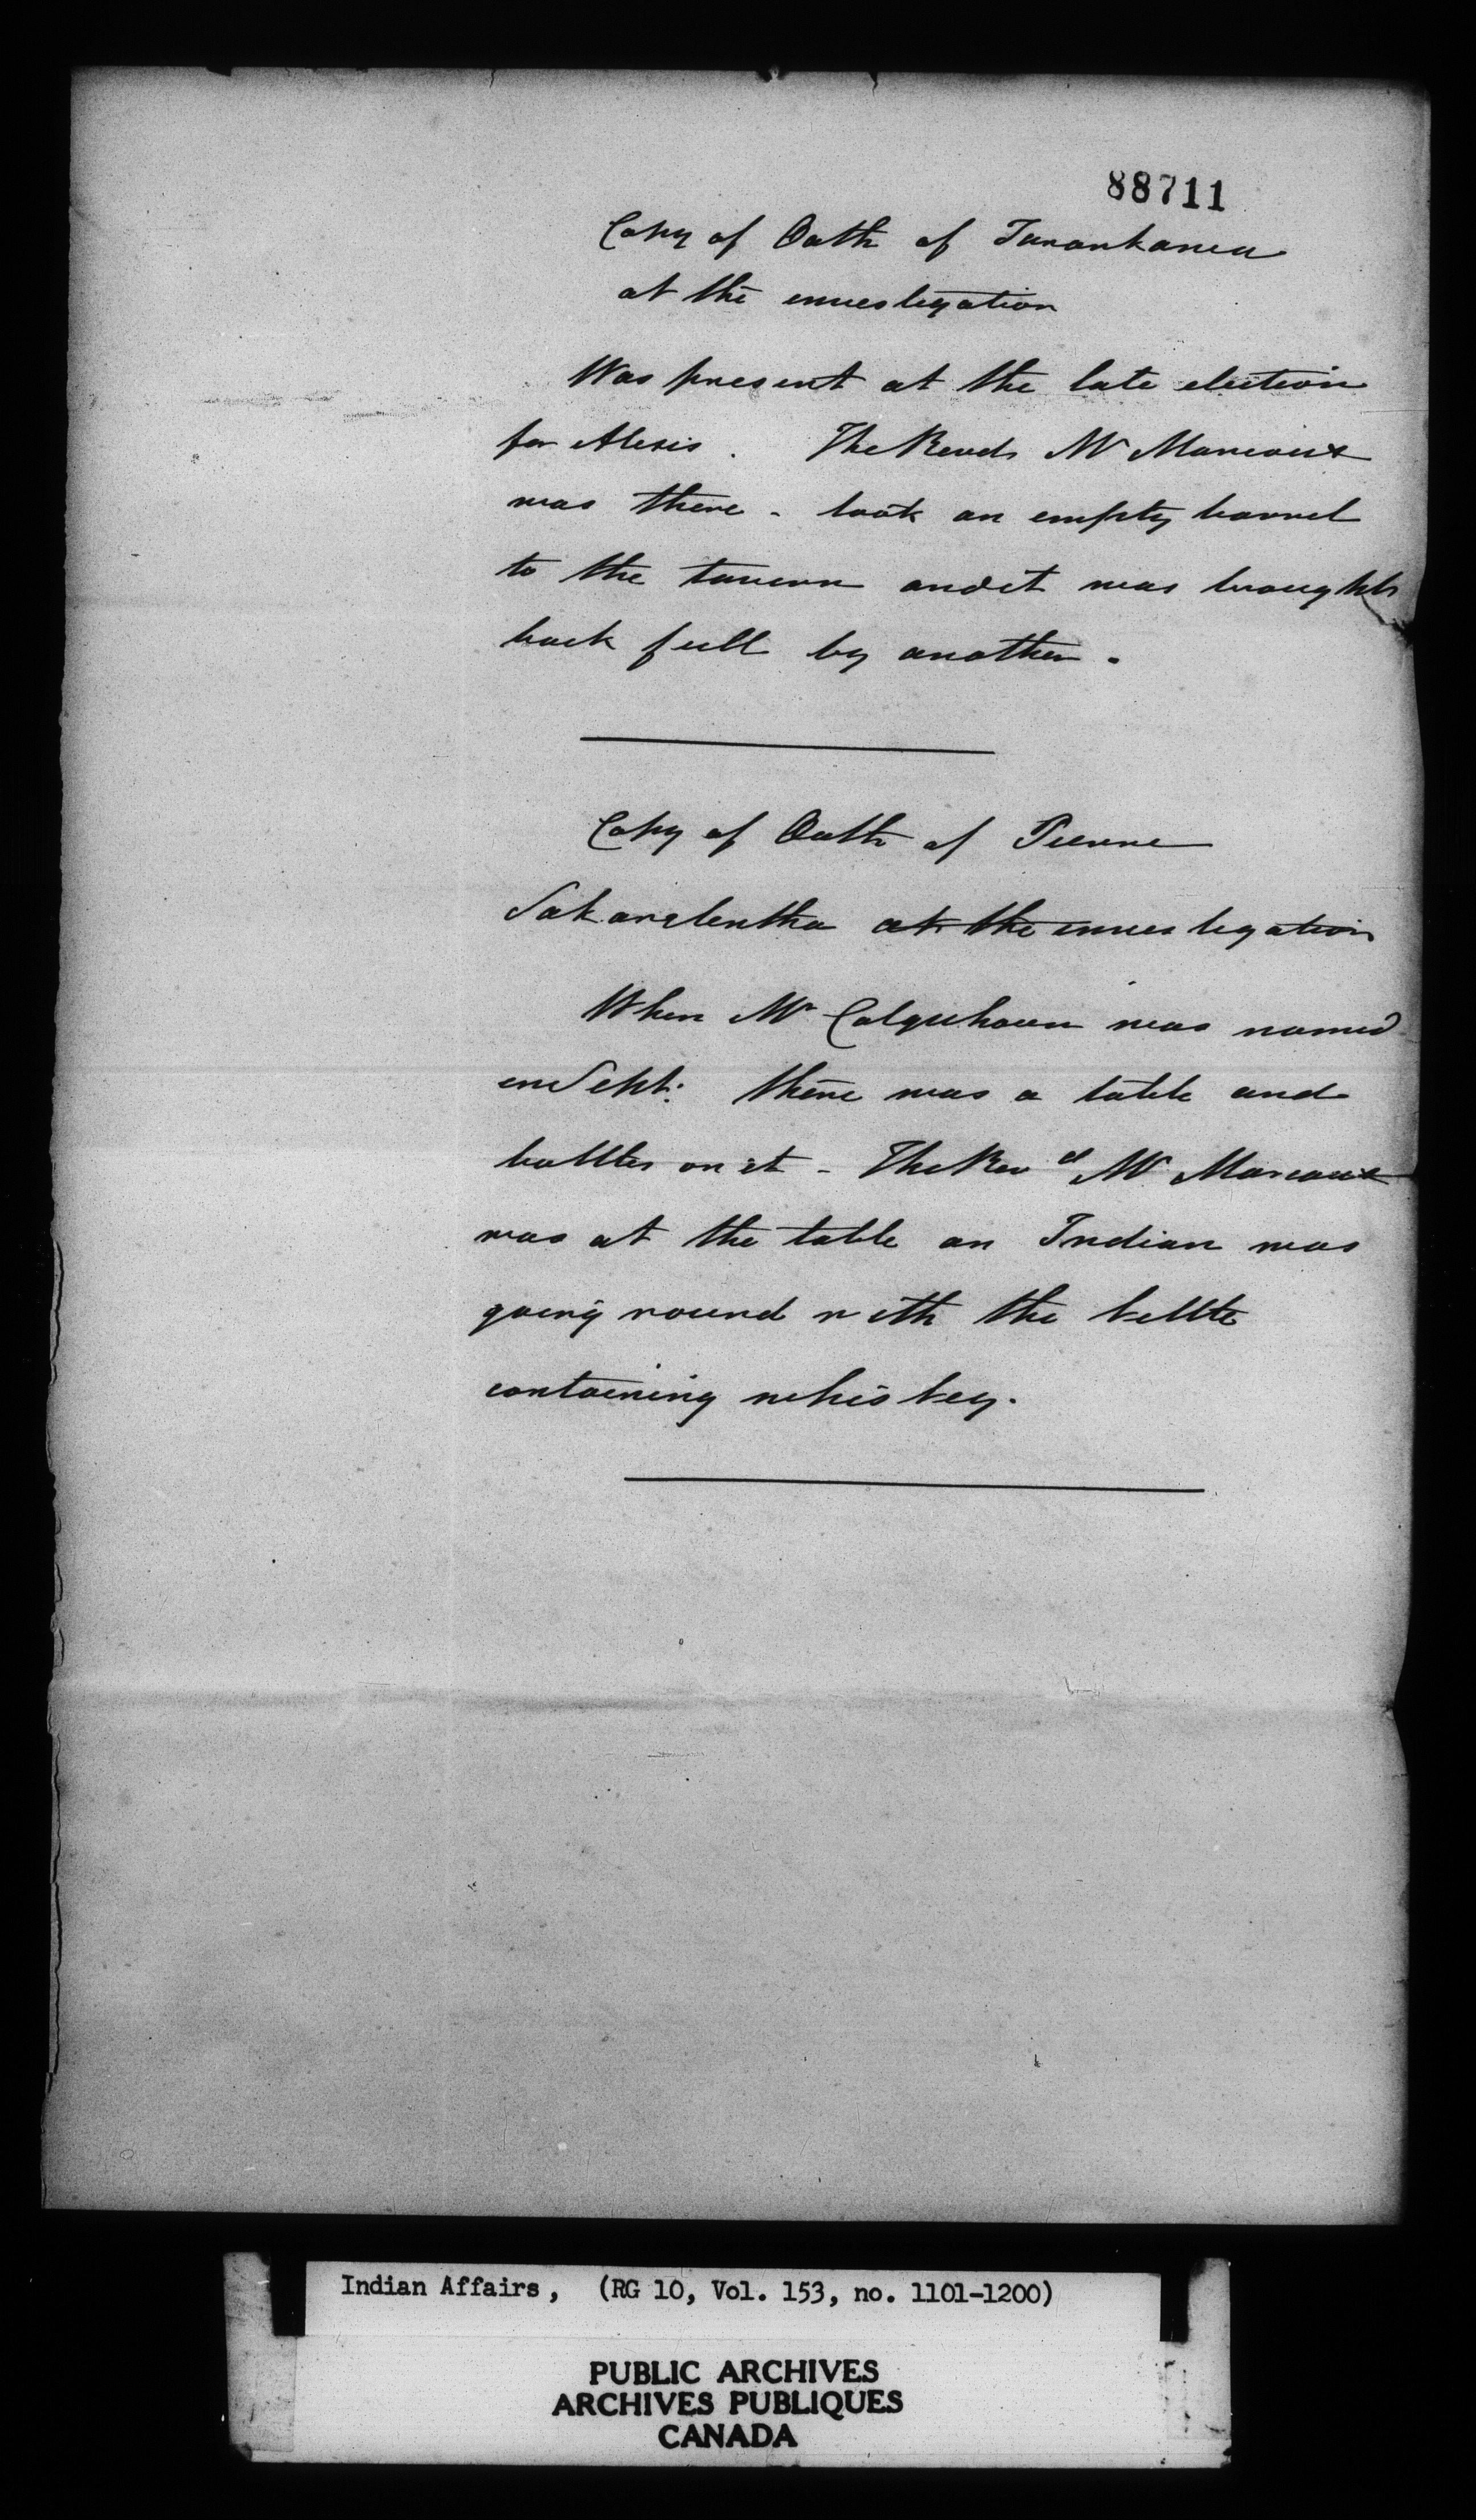 88711
Copy of Oath of Tanankanea
at the investigation
Was present at the late election
for Alexis. The Revd Mr Marcoux
was there - took an empty barrel
to the tavern and it was brought
back full by another.
Copy of Oath of Pierre
at the investigation
When Mr Colquhoun was named
in Sept: there was a table and
bottles on it - The Revd Mr Marcoux
was at the table an Indian was
going round with the bottle
containing whiskey.
Indian Affairs, (RG 10, Vol. 153, no. 1101-1200)
PUBLIC ARCHIVES
ARCHIVES PUBLIQUES
CANADA